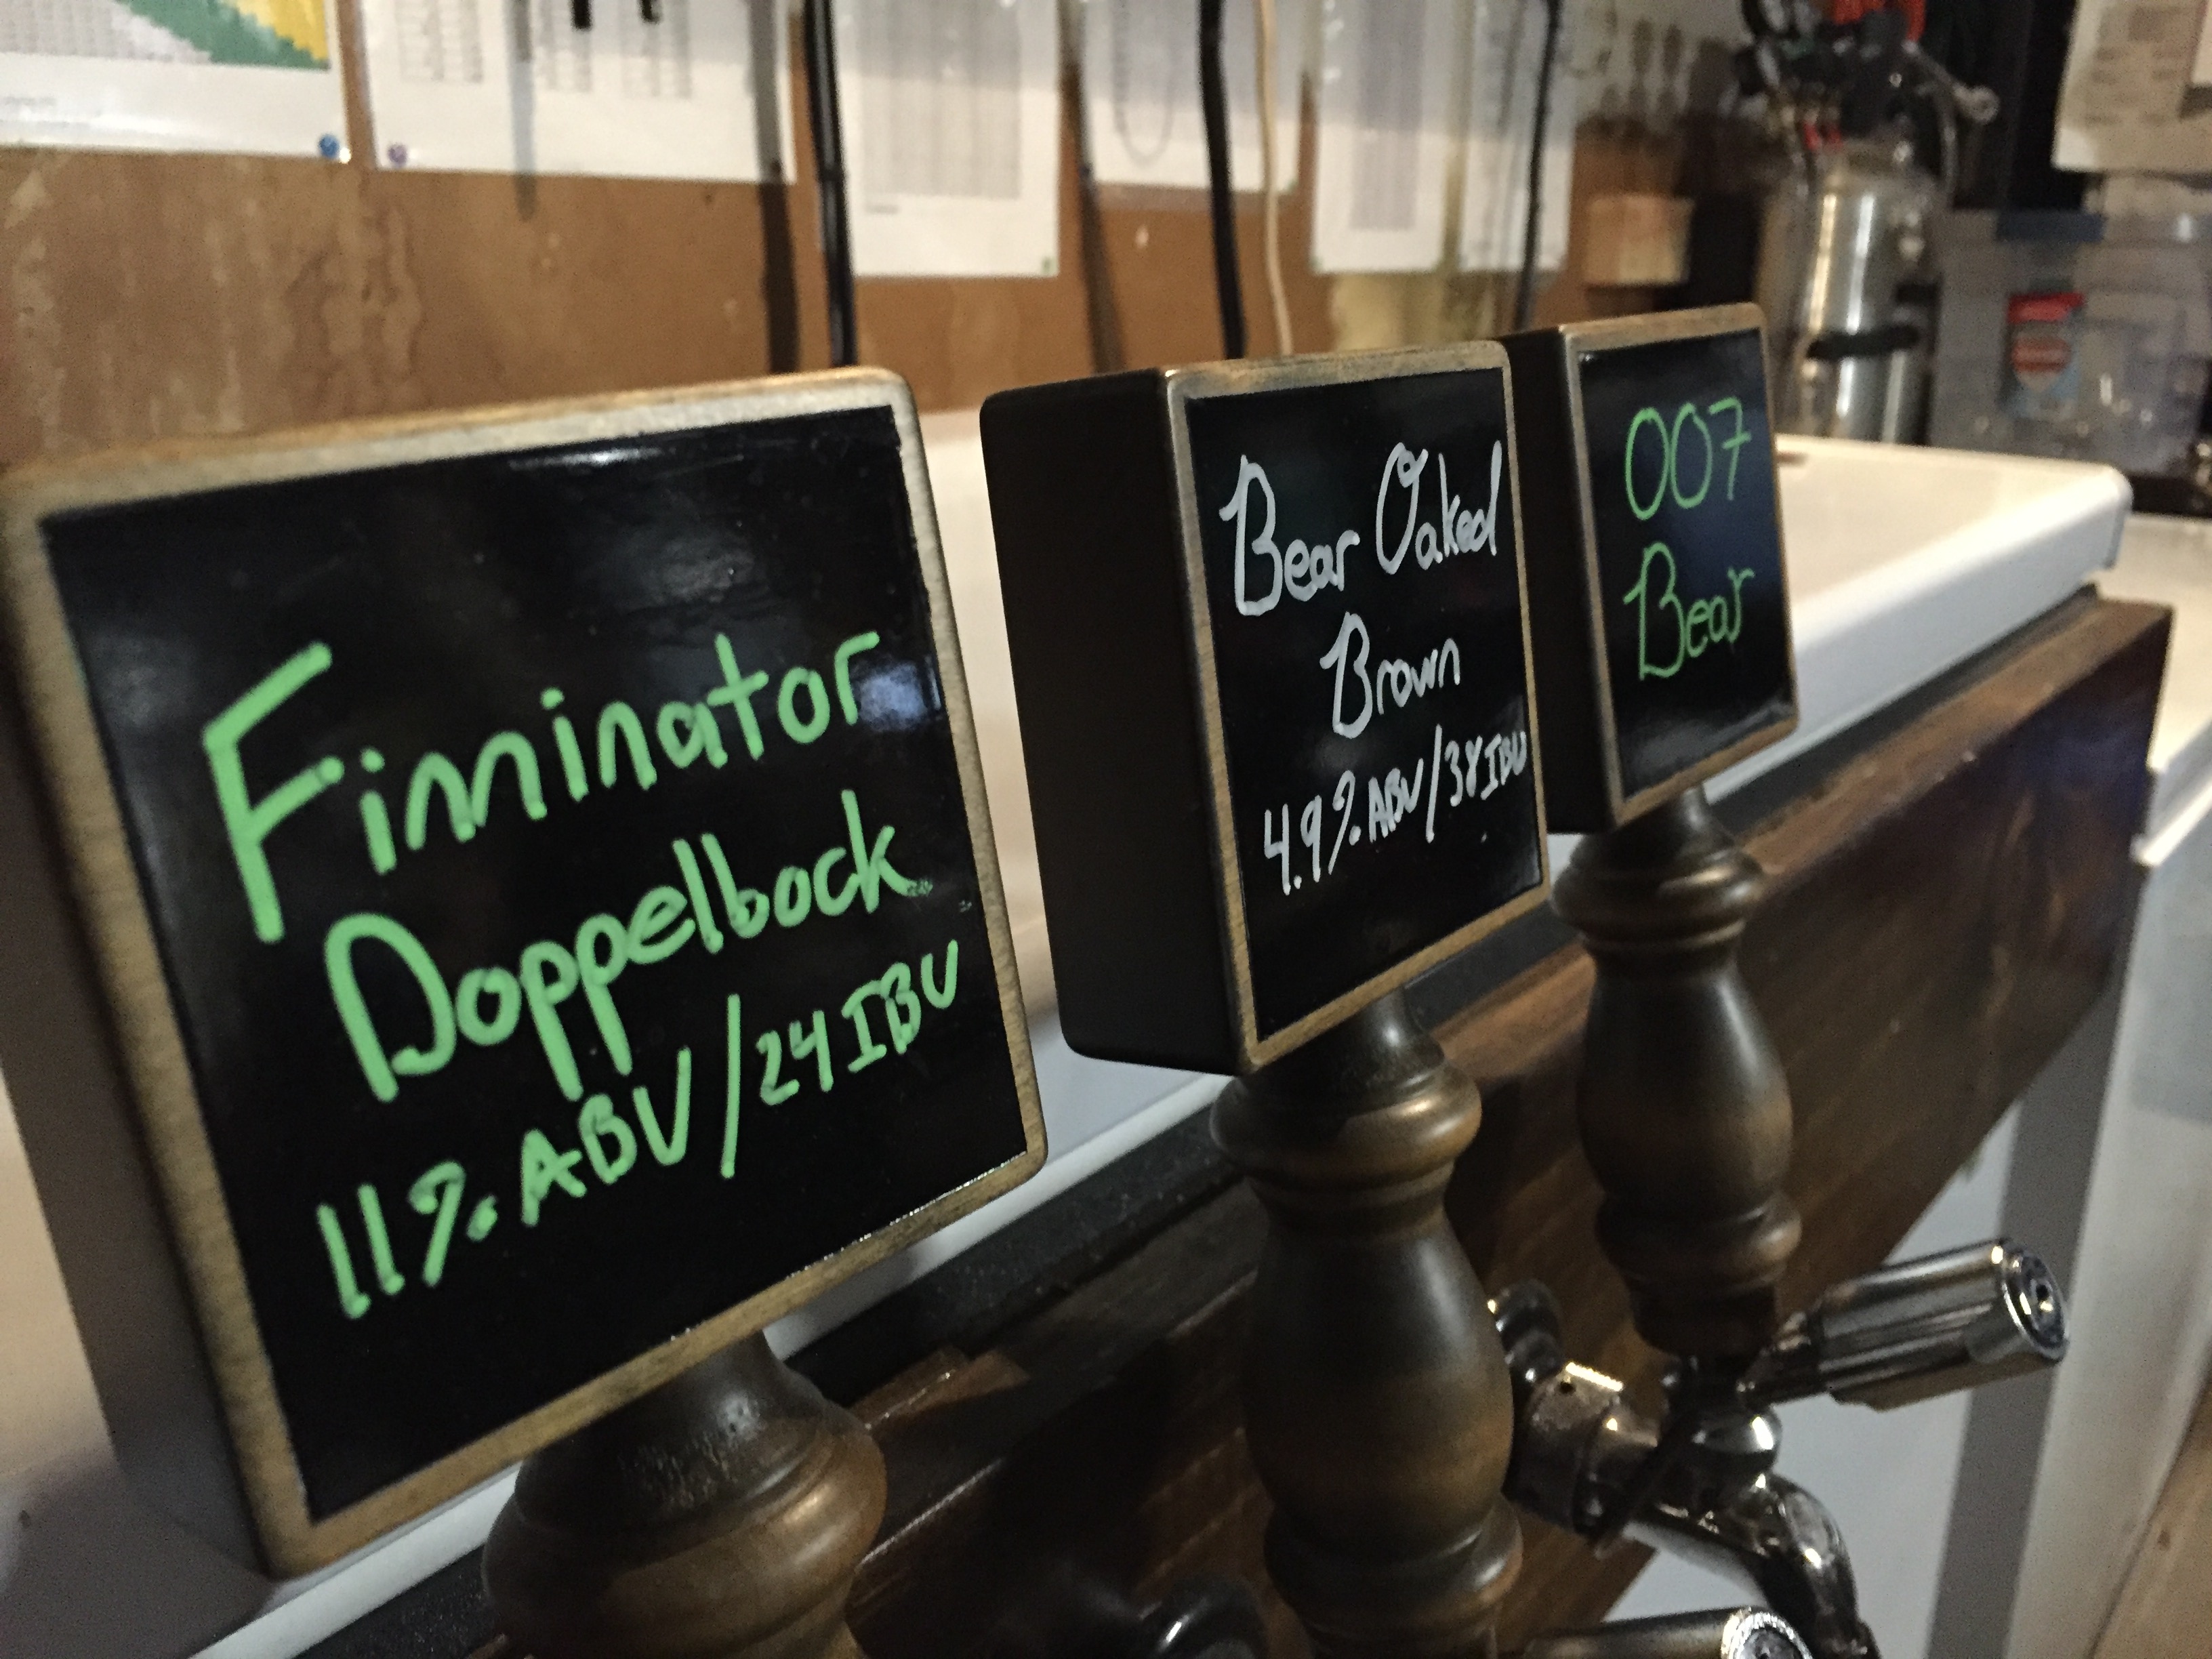 Finninator
Doppelbock
11% ABV/24 IBU
Bear Oaked
Brown
4.9% ABV/38 IBU
007
Bear